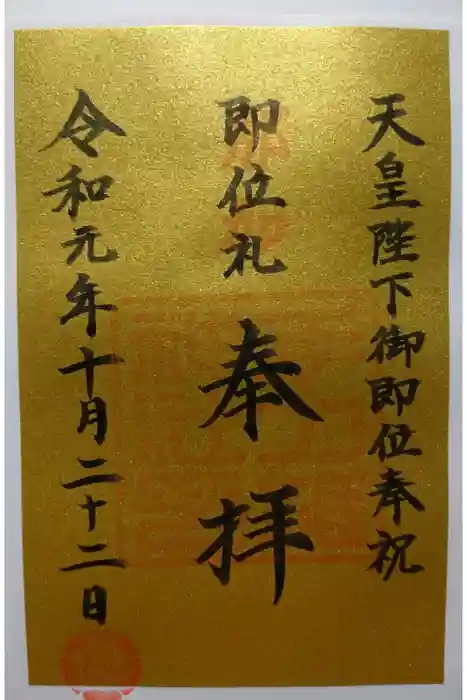 天皇陛下御即位奉祝
即位礼
奉拝
令和元年十月二十二日